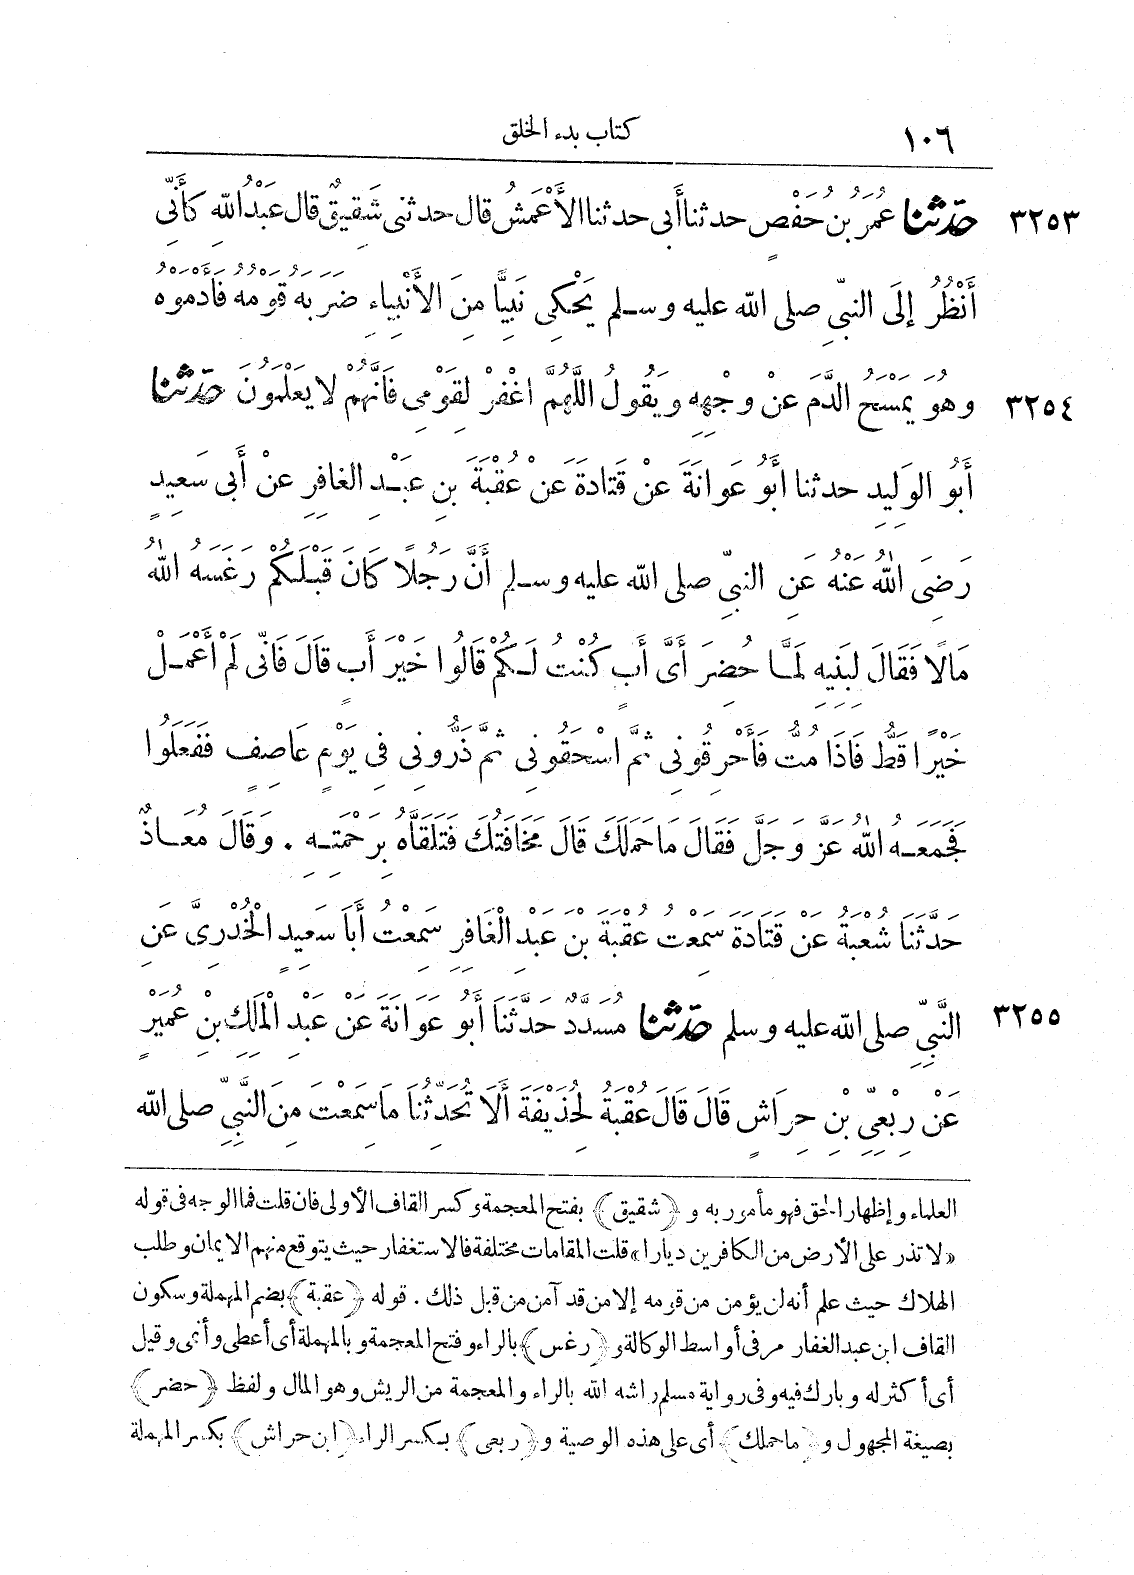 ١٠٦ كتاب بدء الخلق
٣٢٥٣ حدّثنا عُمَرُ بنُ حَفْصٍ حدثنا أَبى حدثنا الأَعْمَشُ قال حدثنى شَقِيقٌ قال عَبْدُ اللهِ كَأَنِّى
أَنْظُرُ إلَى النبِّى صلى الله عليه وسلم يَحْكِى نَبِيًّا مِنَ الأَنْبِياءِ ضَرَبَهُ قَوْمُهُ فَأَدْمَوْهُ
٣٢٥٤ وهُوَ يَمْسَحُ الدَّمَ عَنْ وجْهِهِ وَيَقُولُ اللَّهُمَّ اغْفِرْ لِقَوْمِى فَانَّهُمْ لا يَعْلَمُونَ حدّثنا
أَبُو الوَلِيدِ حدثنا أَبُو عَوانَةَ عَنْ قَتَادَةَ عَنْ عُقْبَةَ بنِ عَبْدِ الغافِرِ عَنْ أَبى سَعِيدٍ
رَضِىَ اللهُ عَنْهُ عَنِ النبِّى صلى الله عليه وسلم أَنَّ رَجُلًا كَانَ قَبْلَكُمْ رَغَسَهُ اللهُ
مَالًا فَقَالَ لِبَنِيهِ لَمَّا حُضِرَ أَىَّ أَبٍ كُنْتُ لَكُمْ قَالُوا خَيْرَ أَبٍ قالَ فَانِّى لَمْ أَعْمَلْ
خَيْرًا قَطُّ فَاذَا مُتُّ فَأَحْرِقُونِى ثُمَّ اسْحَقُونِى ثُمَّ ذَرُّونِى فِى يَوْمٍ عَاصِفٍ فَفَعَلُوا
فَجَمَعَهُ اللهُ عَزَّ وَجَلَّ فَقَالَ مَا حَمَلَكَ قَالَ مَخَافَتُكَ فَتَلَقَّاهُ بِرَحْمَتِهِ . وَقَالَ مُعَاذٌ
حَدَّثَنَا شُعْبَةُ عَنْ قَتَادَةَ سَمِعْتُ عُقْبَةَ بْنَ عَبْدِ الْغَافِرِ سَمِعْتُ أَبَا سَعِيدٍ الْخُدْرِىَّ عَنِ
٣٢٥٥ النَّبِىِّ صلى الله عليه وسلم حدّثنا مُسَدَّدٌ حَدَّثَنَا أَبُو عَوَانَةَ عَنْ عَبْدِ الْمَلِكِ بْنِ عُمَيْرٍ
عَنْ رِبْعِىِّ بْنِ حِرَاشٍ قَالَ قَالَ عُقْبَةُ لِحُذَيْفَةَ أَلَا تُحَدِّثُنَا مَا سَمِعْتَ مِنَ النَّبِىِّ صلى الله
العلماء وإظهار الحق فهو مأمور به و ﴿شقيق﴾ بفتح المعجمة وكسر القاف الأولى فان قلت فما الوجه فى قوله
«لا تذر على الأرض من الكافرين ديارا» قلت المقامات مختلفة فالاستغفار حيث يتوقع منهم الايمان وطلب
الهلاك حيث علم أنه لن يؤمن من قومه إلا من قد آمن من قبل ذلك . قوله ﴿عقبة﴾ بضم المهملة وسكون
القاف ابن عبد الغفار مر فى أواسط الوكالة و ﴿رغس﴾ بالراء وفتح المعجمة وبالمهملة أى أعطى وأنمى وقيل
أى أكثر له وبارك فيه وفى رواية مسلم راشه الله بالراء والمعجمة من الريش وهو المال ولفظ ﴿حضر﴾
بصيغة المجهول و ﴿ما حملك﴾ أى على هذه الوصية و ﴿ربعى﴾ بكسر الراء ﴿ابن حراش﴾ بكسر المهملة